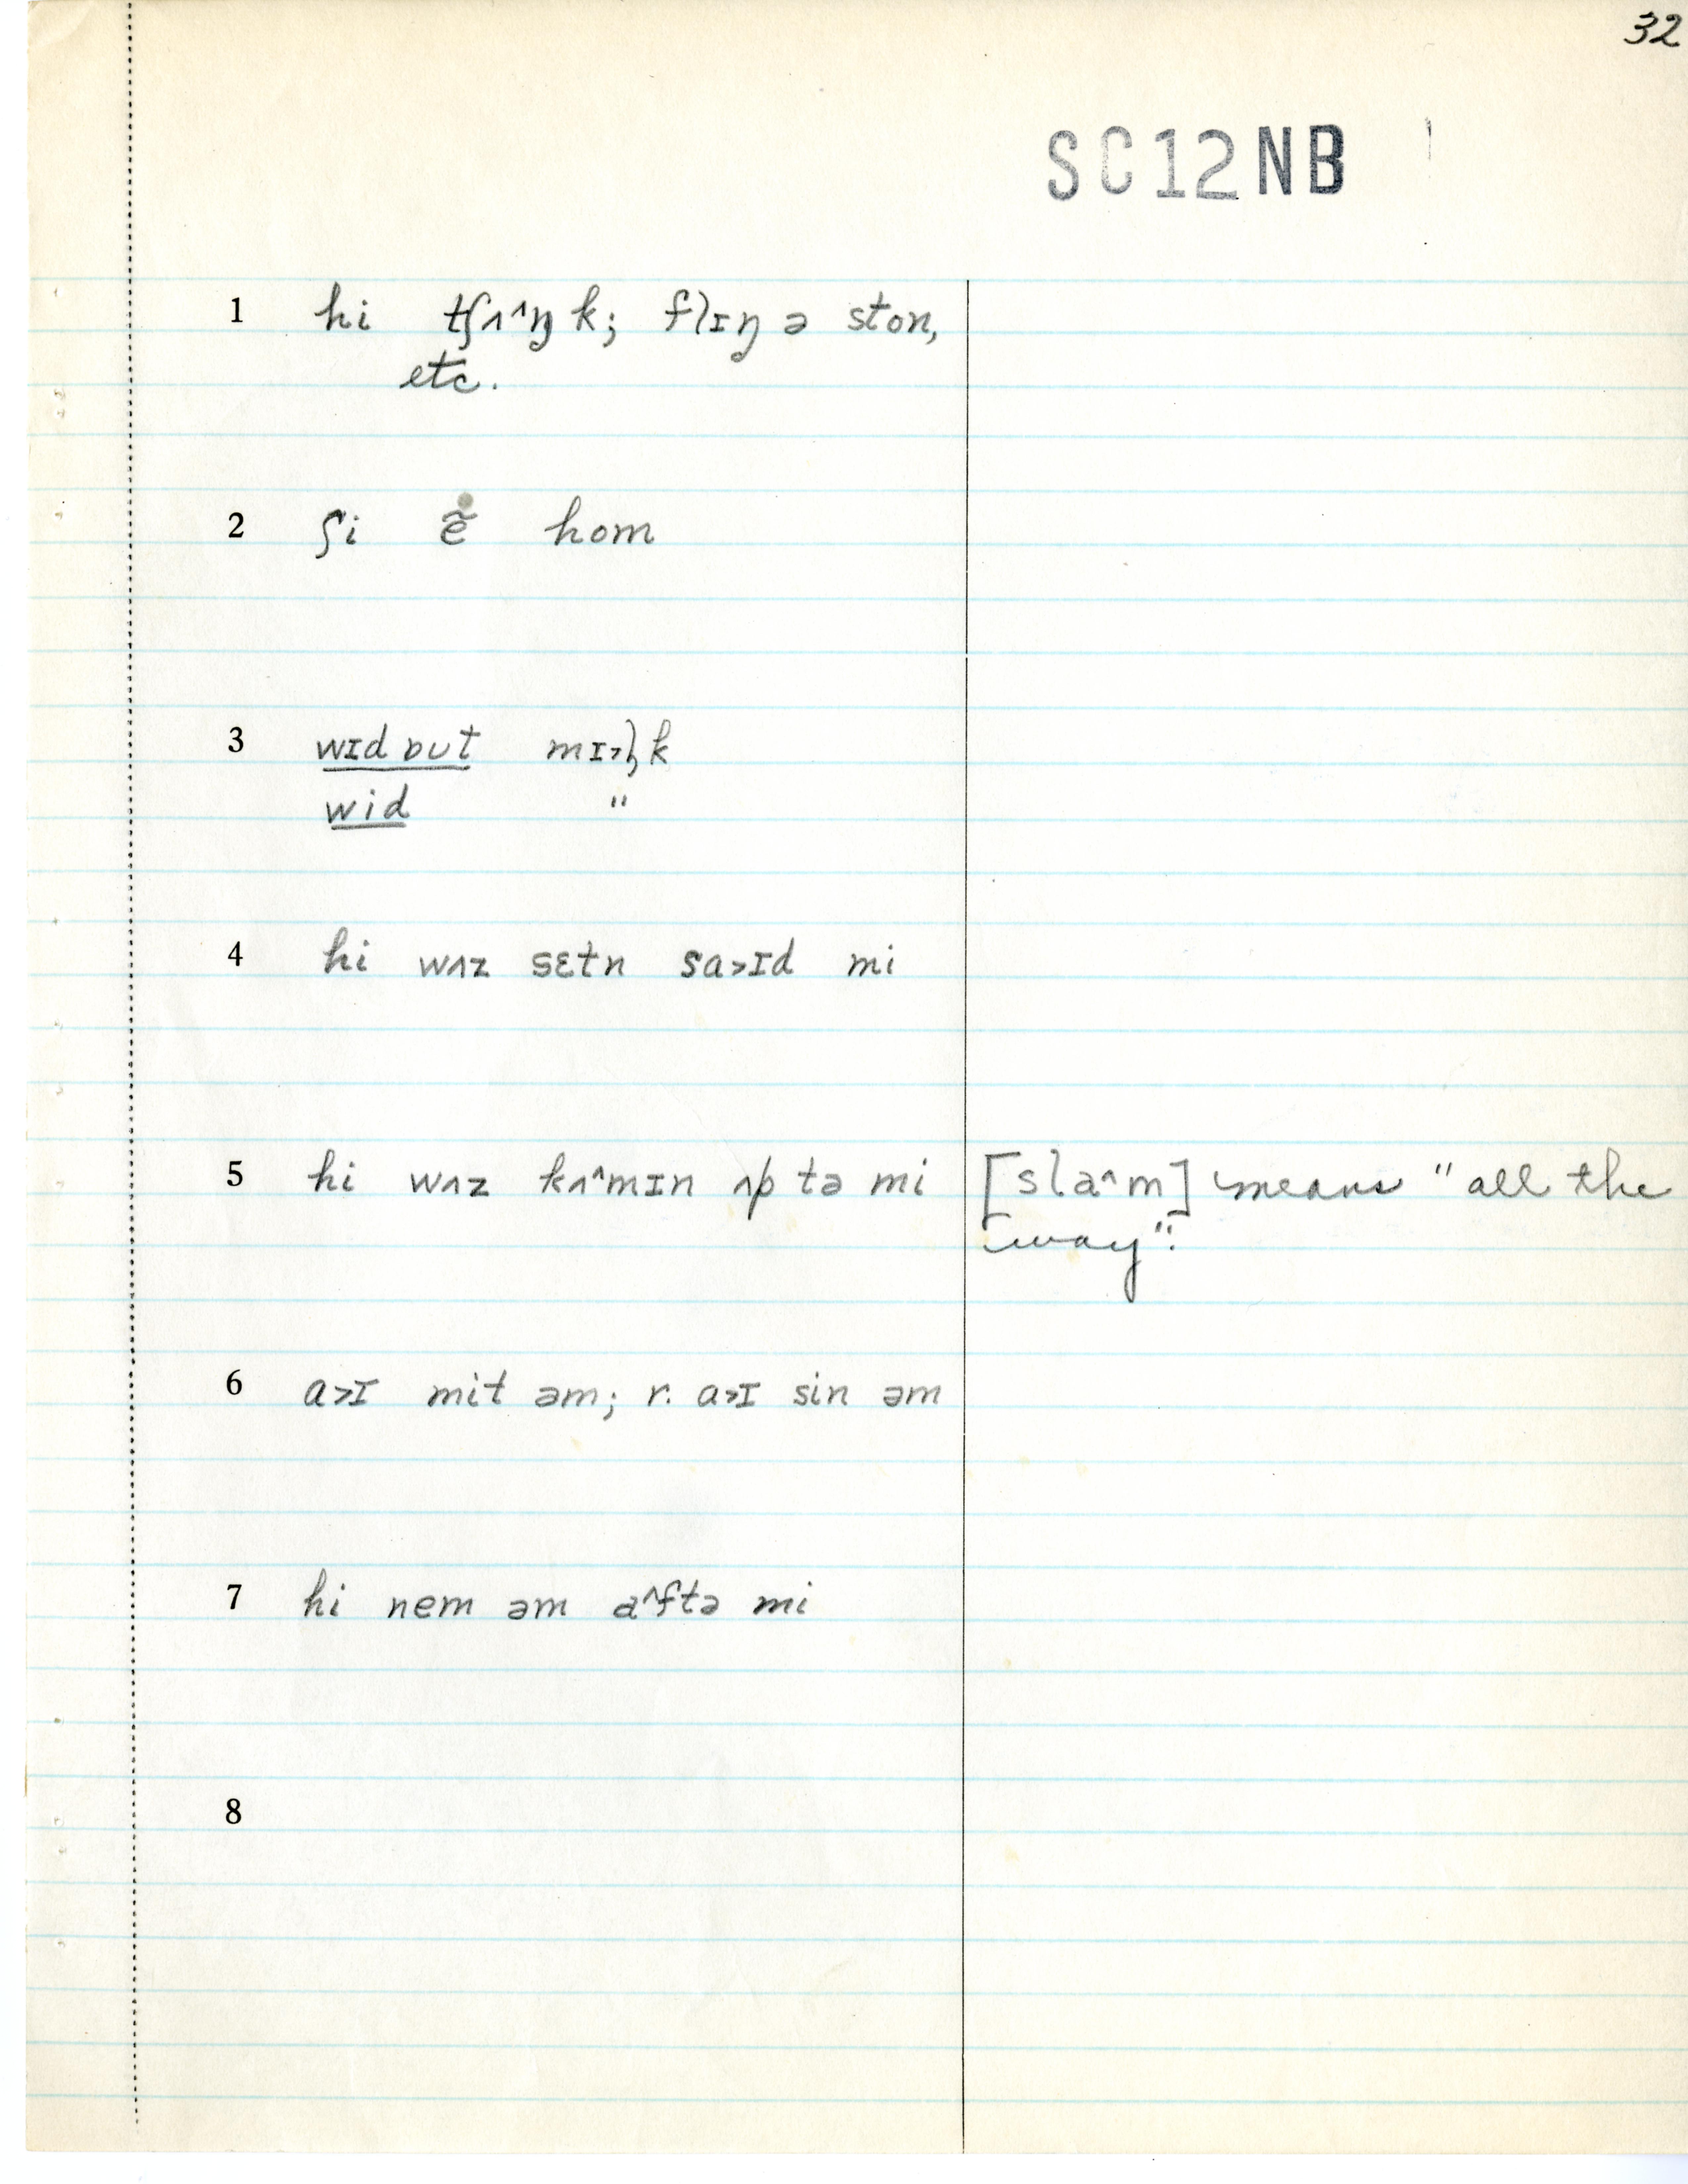 32
SC12NB
1 hi tʃʌ^ŋk; flɪŋ ə ston,
etc.
2 ʃi ẽ hom
3 wɪd ɒʊt mɪ>l̡k
wid "
4 hi wʌz sɛtn sa>ɪd mi
5 hi wʌz kʌ^mɪn ʌp tə mi [sla^m] means "all the
way".
6 a>ɪ mit əm; r. a>ɪ sin əm
7 hi nem əm a^ftə mi
8